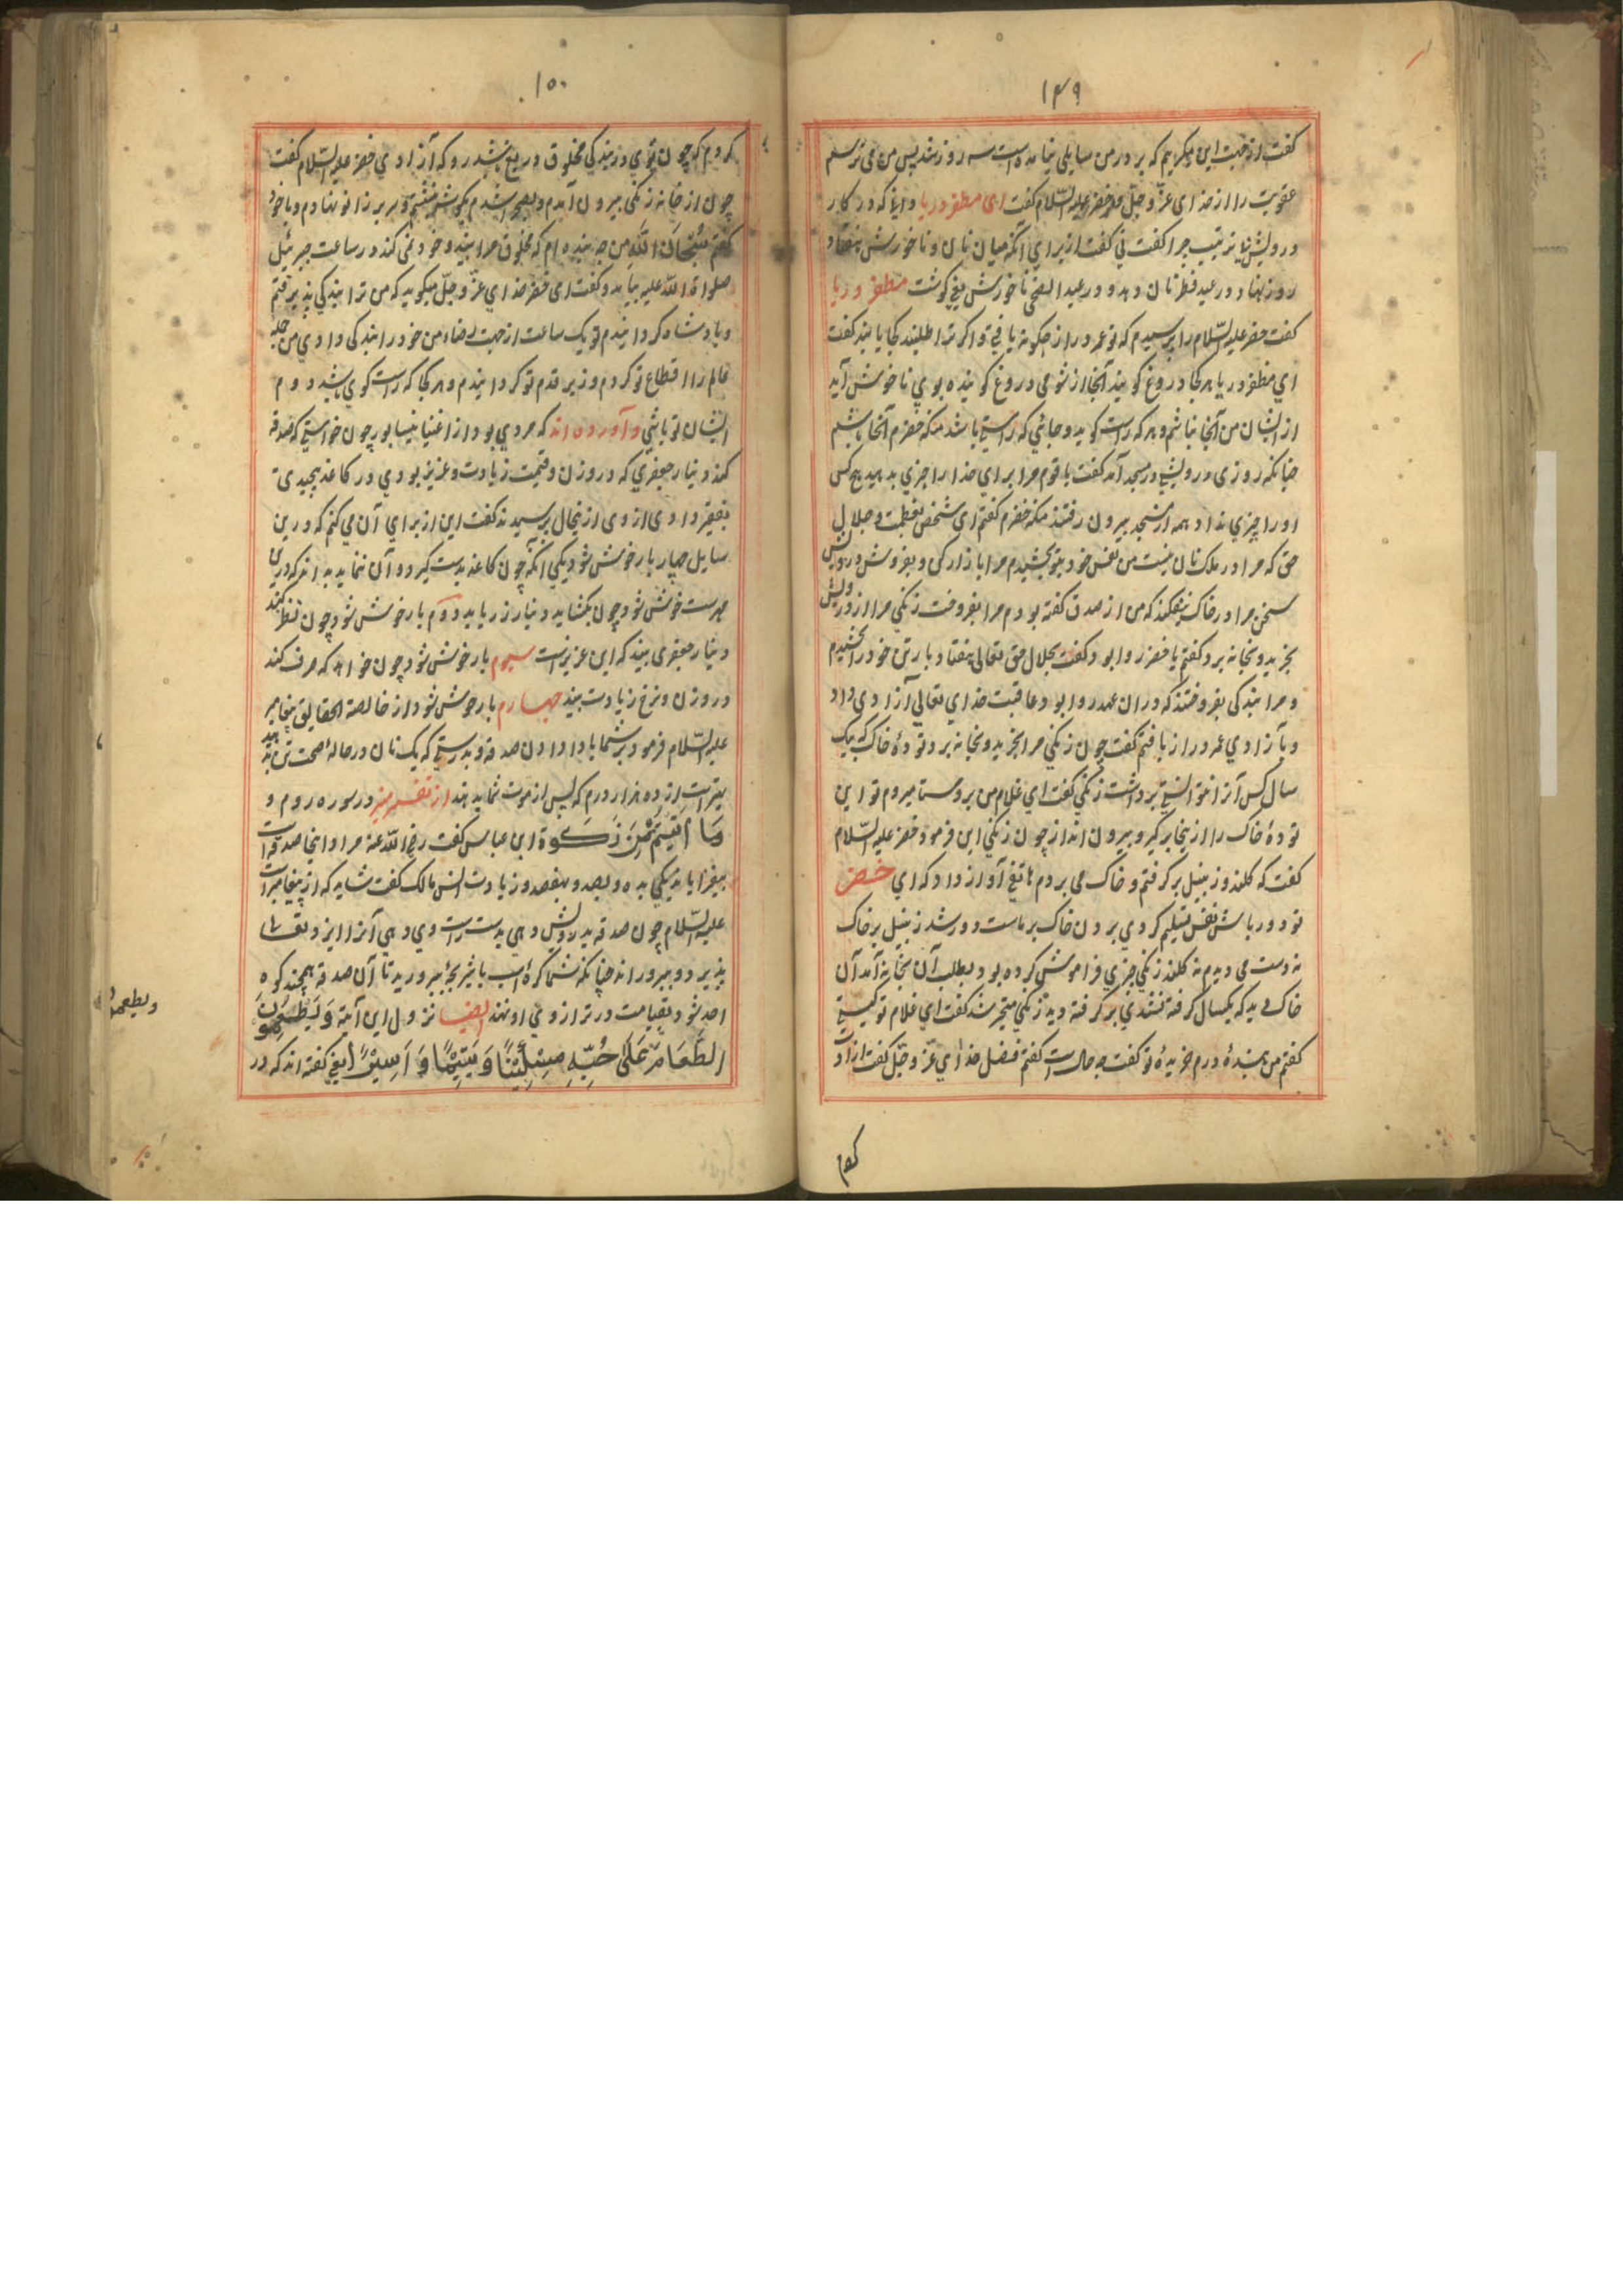 ۱۴۹
کفت از جهت این میکریم که بر در من سایلی نیامده است سه روز شد پس من می ترسم
عقوبت را از خدای عز و جل مهتر خضر علیه السلام کفت ای مظفر دریا دانا که در کار
درویش نا ترتیب چرا کفت نی کفت از برای آنکه میان نان و ناخورش هفتاد
روز نهاد در عید فطر نان دهد و در عید الضحی ناخورش یعنی کوشت مظفر دریا
کفت خضر علیه السلام را پرسیدم که تو عمر دراز چکونه یافتی و اکر ترا طلبند کجا یابند کفت
ای مظفر دریا هر کجا دروغ کویند آنجا از شومی دروغ کوینده بوی ناخوش آید
از ایشان من آنجا نباشم و هر که راست کوید و جائی که راستی باشد منکه خضرم آنجا باشم
چنانکه روزی درویشی در مسجد آمد کفت یا قوم مرا برای خدا را چیزی بدهید هیچ کس
او را چیزی نداد همه از مسجد بیرون رفتند منکه خضرم کفتم ای شخص بعظمت و جلال
حق که مرا در ملک نان نیست من نفس خود بتو بخشیدم مرا بازار کی و بفروش درویش
سخن مرا در خاک نیفکند که من از صدق کفته بودم مرا بفروخت زنکی مرا از درویش
بخرید و بخانه برد کفتم یا خضر روا بود کفت بجلال حق تعالی هفتاد بار تن خود را بخشیدم
و مرا بندکی بفروختند که دران عهد روا بود عاقبت خدای تعالی آزادی داد
و بآزادی عمر دراز یافتم کفت چون زنکی مرا بخرید و بخانه برد تودهٔ خاک که بیک
سال کس آنرا نتوانستی برداشت زنکی کفت ای غلام من بروستا میروم تو این
تودهٔ خاک را از ینجا برکیر و بیرون انداز چون زنکی این فرمود خضر علیه السلام
کفت که کلند و زنبیل برکرفتم و خاک می بردم هاتفی آواز داد که ای خضر
تو دور باش نفس تسلیم کردی بردن خاک بر ماست دور شد زنبیل بر خاک
نه دست می دیدم نه کلند زنکی چیزی فراموش کرده بود بطلب آن بخانه آمد آن
خاک دید که یکسال کرفته نشدی برکرفته دید زنکی متحیر شد کفت ای غلام تو کیستی
کفتم من بندهٔ درم خریدهٔ تو کفت چه حالت است کفتم فضل خدای عز و جل کفت از آن
۱۵۰
کردم که چون توی در بندکی مخلوق دریغ باشد رو که آزادی خضر علیه السلام کفت
چون از خانه زنکی بیرون آمدم و بصحرا شدم بکوشه نشستم و سر بر زانو نهادم و با خود
کفتم سبحان الله من چه بنده ام که مخلوق مرا بیند و خود نمی کند در ساعت جبرئیل
صلواة الله علیه بیامد و کفت ای خضر خدای عز و جل میکوید که من ترا ببندکی پذیرفتم
و پادشاه کردانیدم تو یک ساعت از جهت رضاء من خود را ببندکی دادی من جمله
عالم را اقطاع تو کردم و زیر قدم تو کردانیدم و هر کجا که راست کوی باشد دوم
ایشان تو باشی و آورده اند که مردی بود از اغنیاء نیسابور چون خواستی که صدقه
کند دینار جعفری که در وزن و قیمت زیادت و عزیز بودی در کاغذ پیچیدی
بفقیر دادی ازوی از ینحال پرسیدند کفت این از برای آن می کنم که درین
سایل چهار بار خوش شود یکی آنکه چون کاغذ بدست کیرد و آن نماید بداند که دری
مهرست خوش شود چون بکشاید دینار زر یابد دوم بار خوش شود چون نظر کند
دینار جعفری بیند که این عزیزست سیوم بار خوش شود چون خواهد که صرف کند
در وزن و نرخ زیادت بیند چهارم بار خوش شود از خالصة الحقایق پیغامبر
علیه السلام فرمود بر شما بادا دادن صدقه و بدرستی که یک نان در حالهٔ صحت تن بدهید
بهترست از ده هزار درم که پس از موت شما بدهند از تفسیر منیر در سوره روم و
وما آتیتم من زکوة ابن عباس کفت رضی الله عنه مراد اینجا صدقه است
بیفزایاند یکی به ده و بصد و بهفصد و زیادت انس مالک کفت شاید که از پیغامبرست
علیه السلام چون صدقه بدرویش دهی بدست راست وی دهی آنرا ایزد تعالی
پذیرد و بپروراند چنانکه شما کرهٔ اسب یا شتر بچهٔ بپرورید تا آن صدقه همچند کوه
احد شود و بقیامت در ترازوی او نهند ایضا نزول این آیة ویطعمون
الطعام علی حبه مسکینا ویتیما و اسیرا بعضی کفته اند که در
ویطعمون
کردم